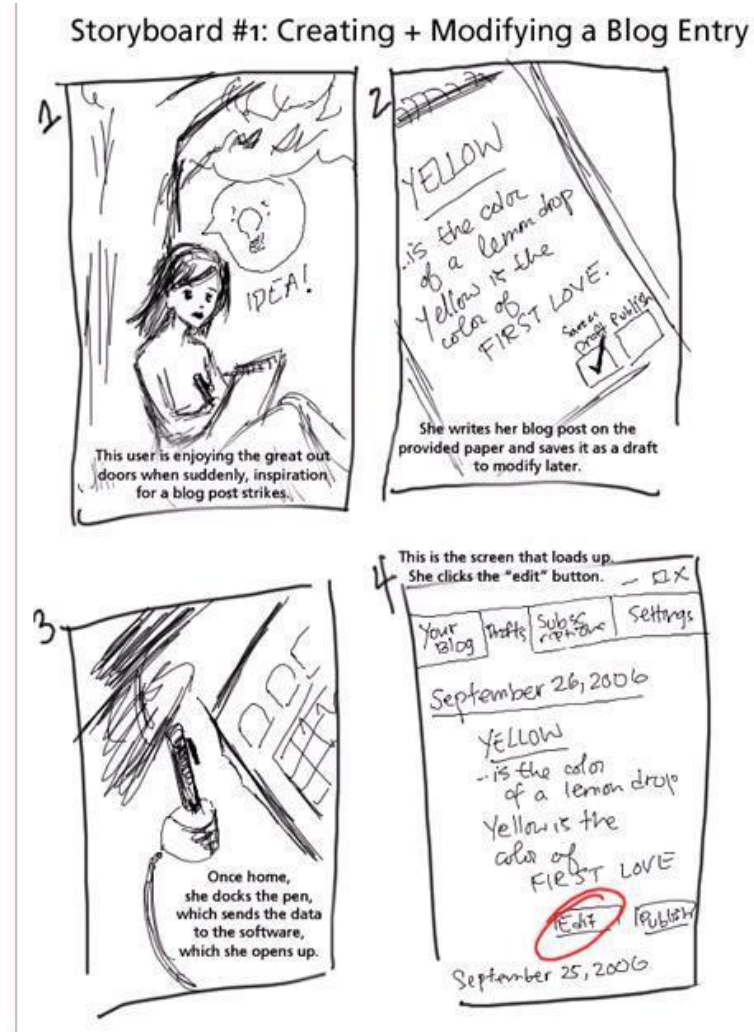 Storyboard #1: Creating + Modifying a Blog Entry
1
IDEA!
This user is enjoying the great out
doors when suddenly, inspiration
for a blog post strikes.
2
YELLOW
...is the color
of a lemon drop
Yellow is the
color of
FIRST LOVE.
Save as
Draft
Publish
She writes her blog post on the
provided paper and saves it as a draft
to modify later.
3
Once home,
she docks the pen,
which sends the data
to the software,
which she opens up.
4
This is the screen that loads up.
She clicks the "edit" button.
Your
Blog
Drafts
Subsc
riptions
Settings
September 26, 2006
YELLOW
...is the color
of a lemon drop
Yellow is the
color of
FIRST LOVE
Edit
Publish
September 25, 2006